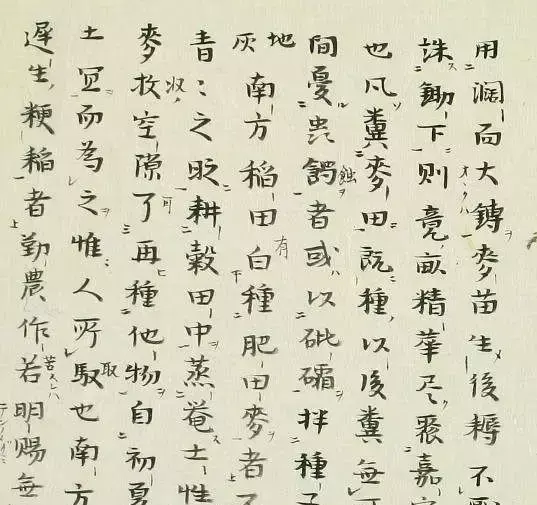 用濶面大鎛麥苗生後耨不
誅鋤下則竟畝精華尽聚嘉
也凡糞麥田既種以後糞無
間憂虫者或以砒礵拌種子
蝕
地灰南方稻田白種肥田麥者
有
青〻之耕穀田中蒸罨土性
麥收空隙了再種他物自初夏
收
可
土宜而為之惟人所馭也南方
取
遲生粳稻者勤農作若明賜無
苦